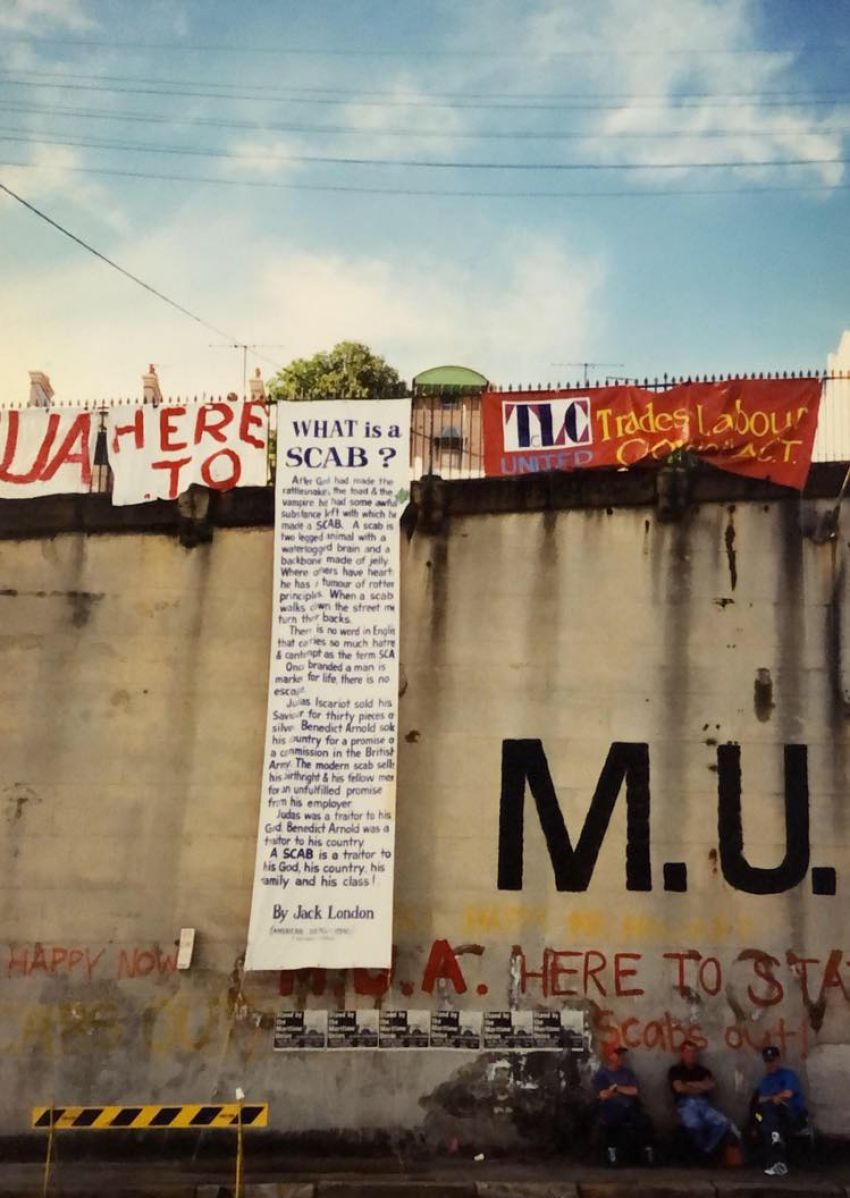 UA
HERE
TO
WHAT is a
SCAB?
After God had made the
rattlesnake, the toad & the
vampire he had some awful
substance left with which he
made a SCAB. A scab is
two legged animal with a
waterlogged brain and a
backbone made of jelly.
Where others have heart
he has a tumour of rotten
principles. When a scab
walks down the street me
turn their backs.
There is no word in Engli
that carries so much hatre
& contempt as the term SCA
Once branded a man is
marked for life, there is no
escape.
Judas Iscariot sold his
Saviour for thirty pieces o
silver. Benedict Arnold sol
his country for a promise o
a commission in the British
Army. The modern scab sells
his birthright & his fellow men
for an unfulfilled promise
from his employer
Judas was a traitor to his
God. Benedict Arnold was a
traitor to his country
A SCAB is a traitor to
his God, his country, his
family and his class!
By Jack London
TLC
UNITED
Trades Labour
M.U.
HAPPY NOW
M.U.A. HERE TO STA
Scabs out!
Stand by the Maritime Union
Stand by the Maritime Union
Stand by the Maritime Union
Stand by the Maritime Union
Stand by the Maritime Union
Stand by the Maritime Union